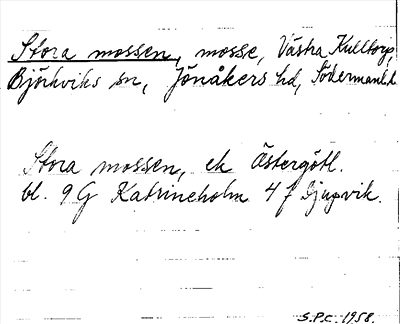 Stora mossen, mosse, Västra Kulltorp,
Björkviks sn, Jönåkers hd, Södermanl.
Stora mossen, ek Östergötl.
bl. 9 G Katrineholm 4 f Djupvik.
S.P.C. 1958.